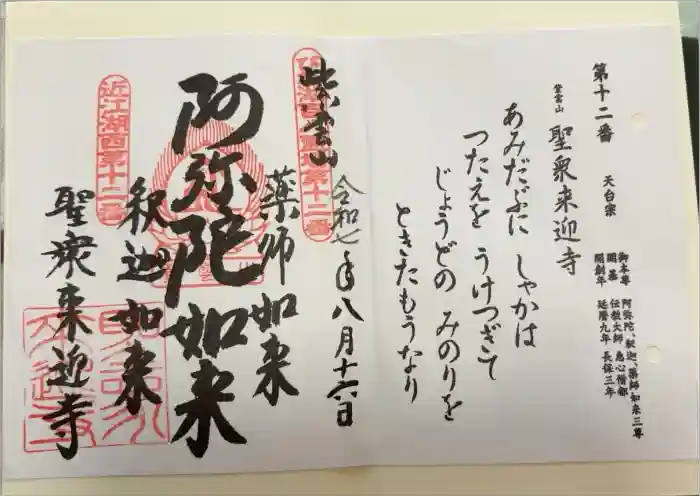 第十二番
天台宗
紫雲山
聖衆来迎寺
御本尊 阿弥陀、釈迦、薬師如来三尊
開基 伝教大師 恵心僧都
開創年 延暦九年 長保三年
あみだぶに しゃかは
つたえを うけつぎて
じょうどの みのりを
ときたもうなり
紫雲山
令和七年八月十六日
薬師如来
阿弥陀如来
釈迦如来
聖衆来迎寺
近江湖西第十二番